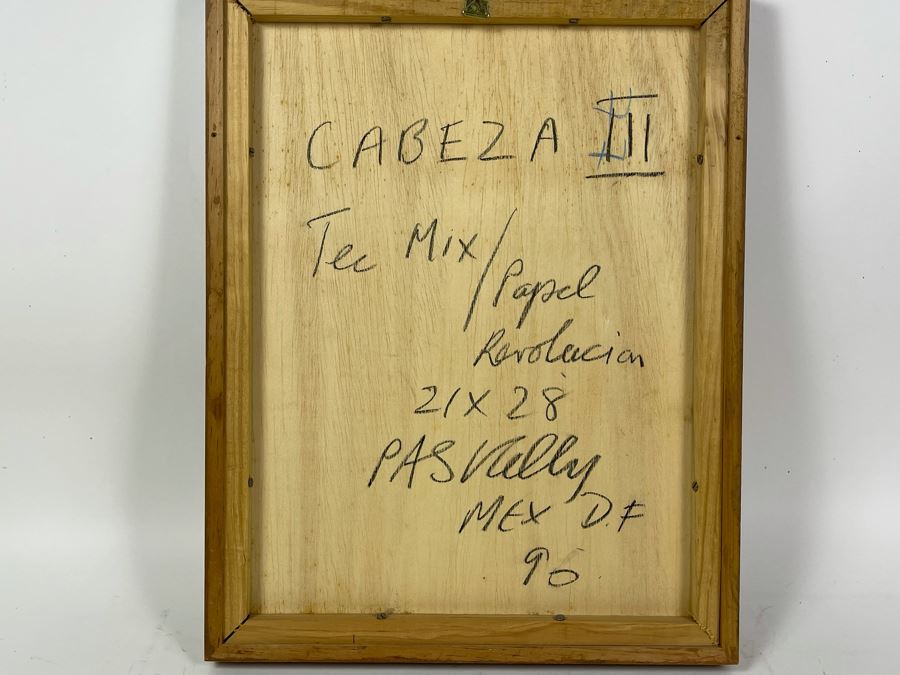 CABEZA III
Tec Mix/
Papel
Revolucion
21 X 28
PASKelly
MEX D.F
90